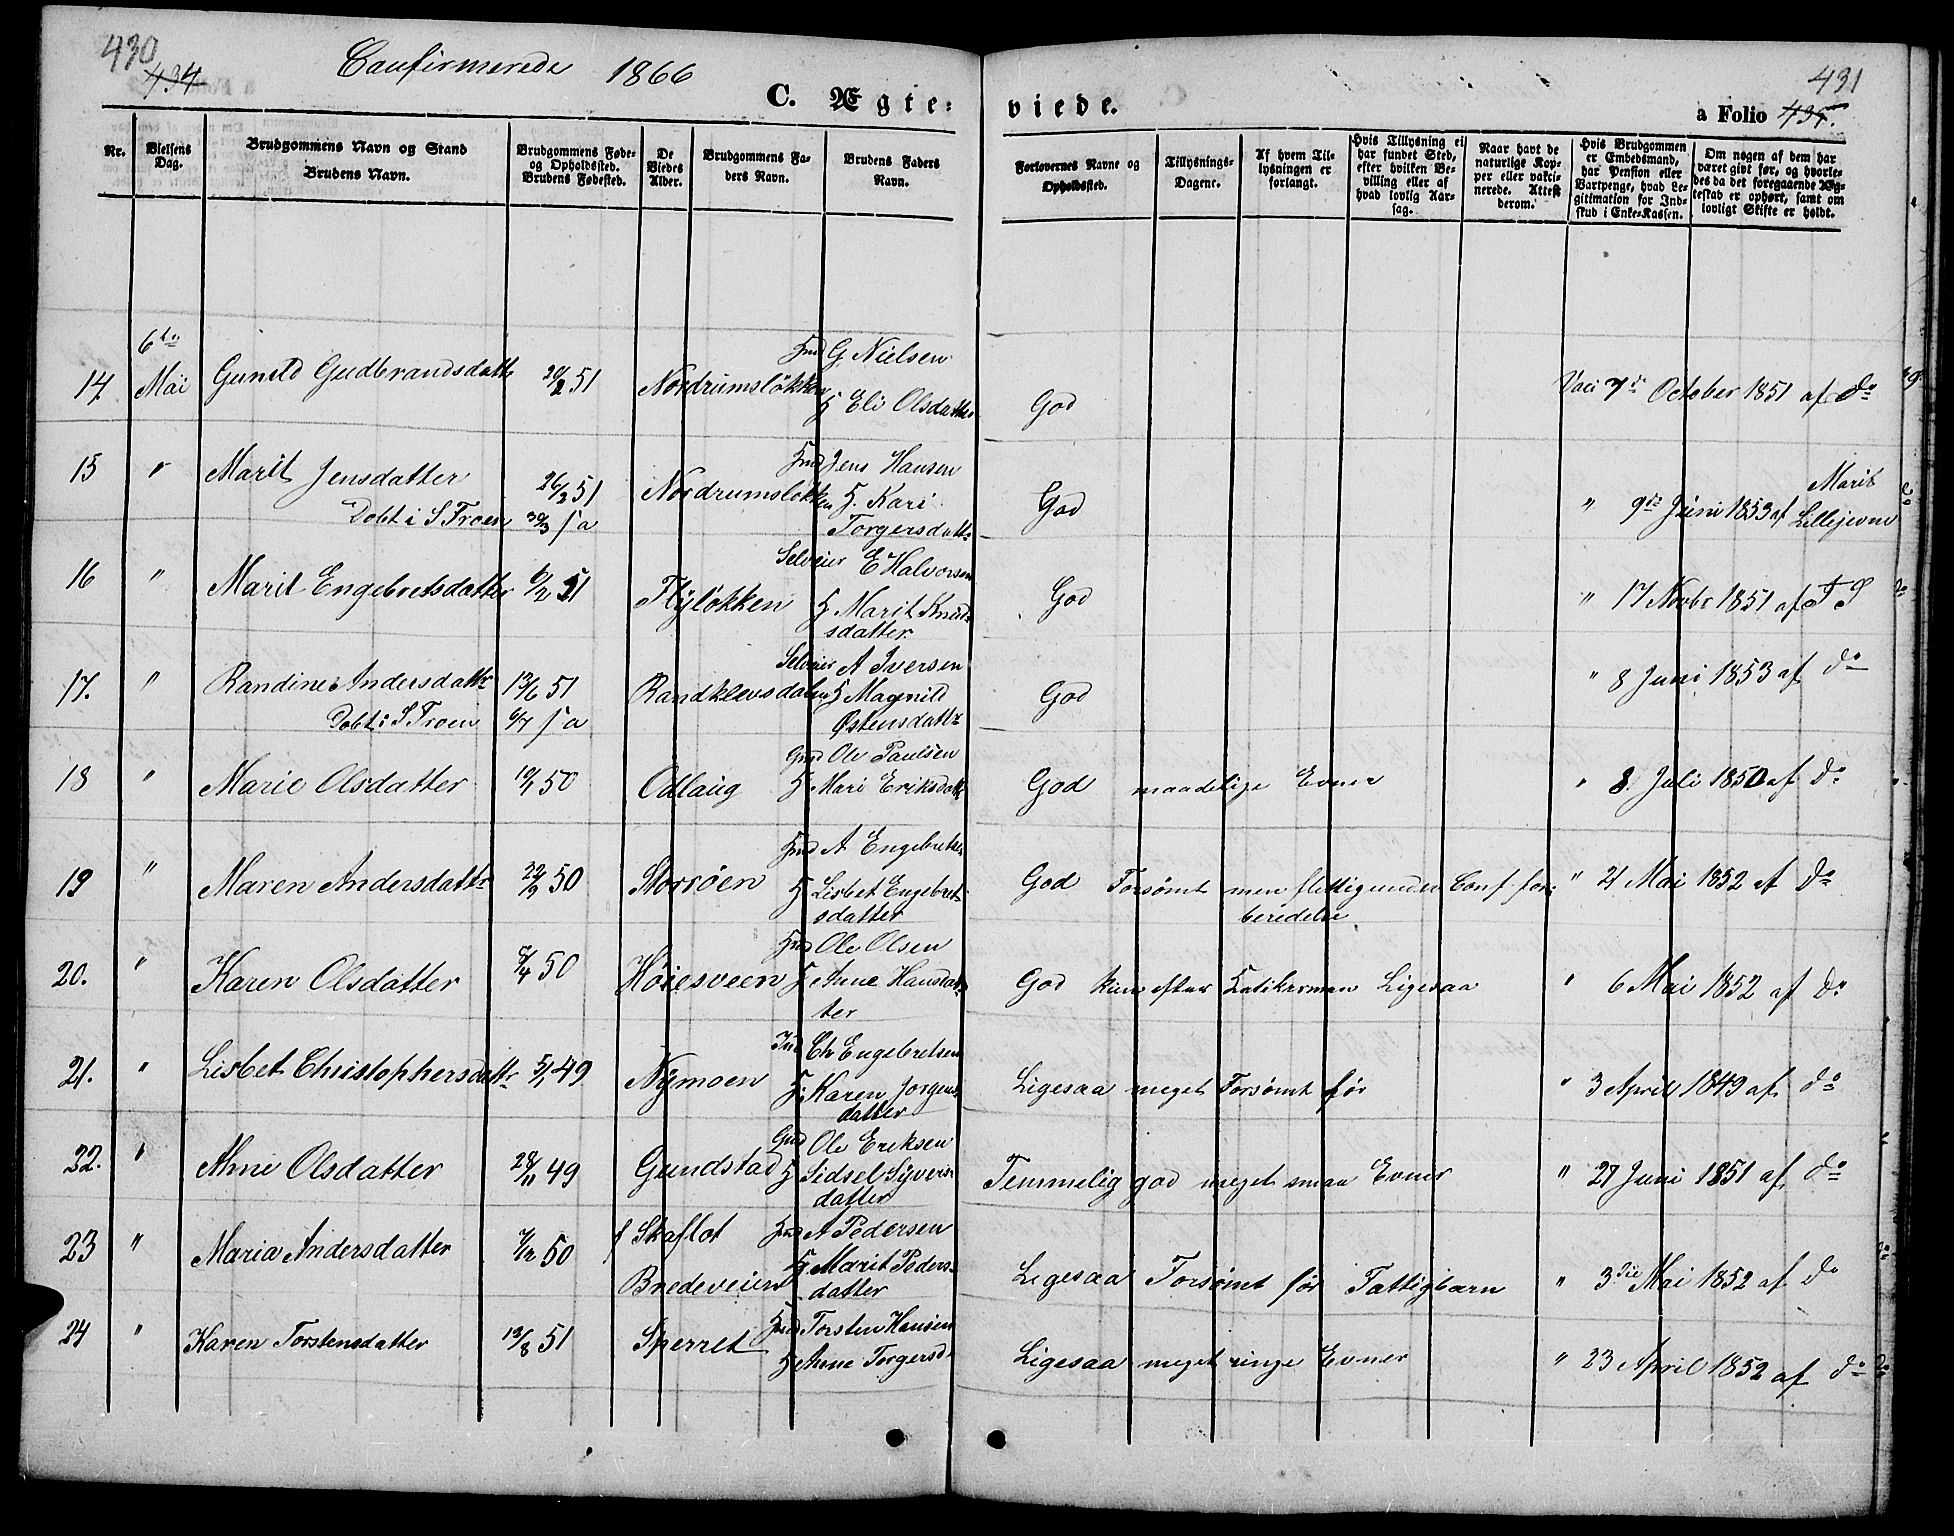 430
434
Confirmerede 1866
C. Ægte-
viede.
431
a Folio 435.
Nr.
Vielsens Dag.
Brudgommens Navn og Stand
Brudens Navn.
Brudgommens Føde- og Opholdssted.
Brudens Fødested.
De Viedes Alder.
Brudgommens Faders Navn.
Brudens Faders Navn.
Forlovernes Navne og Opholdssted.
Tillysnings-Dagene.
Af hvem Tillysningen er forlangt.
Hvis Tillysning ei har fundet Sted, efter hvilken Bevilling eller af hvad lovlig Aarsag.
Naar havt de naturlige Kopper eller vaccinerede. Attest derom.
Hvis Brudgommen er Embedsmand, har Pension eller Vartpenge, hvad Legitimation for Indskud i Enke-Kassen.
Om nogen af dem har været givt før, og hvorledes da det foregaaende Ægteskab er ophørt, samt om lovligt Skifte er holdt.
14 6te Mai Gunild Gudbrandsdatt 20/2 51 Nordrumsløkken Hmd G Nielsen H Eli Olsdatter God Vaci 7de October 1851 af do
15 " Marit Jensdatter 26/2 51 Nordrumsløkken Hmd Jens Hansen H. Kari Torgersdattr God " 9de Juni 1853 af Marit Lillejevne
Døbt i S Froen 30/3 s a
16 " Marit Engebretsdatter 6/2 51 Flyløkken Selveier E Halvorsen H Marit Knudsdatter God " 17 Novbr 1851 af F S
17. " Randine Andersdattr 13/6 51 Randklevsdalen Selveier A Iversen H Magnild Østensdattr God " 8 Juni 1853 af do
Døbt i S. Froen 6/7 s a
18 " Marie Olsdatter 10/1 50 Odlaug Gmd Ole Paulsen H Mari Eriksdatt God maadelige Evner " 8. Juli 1850 af do
19 " Maren Andersdattr 50 Storrøen Hmd A Engebretsen H Lisbet Engebretsdatter God Forsømt men flittig under Conf forberedelse " 21 Mai 1852 af do
20. " Karen Olsdatter 5/4 50 Høiesveen Hmd Ole Olsen H Anne Hansdatter God kun efter Ligesaa " 6 Mai 1852 af do
21. " Lisbet Christophersdattr 5/1 49 Nymoen Ind Chr Engebretsen H: Karen Jørgensdatter Ligesaa meget Forsømt før " 3 April 1849 af do
22. " Anne Olsdatter 28/11 49 Gundstad Gmd Ole Eriksen H Sidsel Syversdatter Temmelig god meget smaa Evner " 27 Juni 1851 af do
23 " Maria Andersdatter 7/12 50 f Skaflot Bredeveien Hmd A Pedersen H Marit Pedersdatter Ligesaa Forsømt før Fattigbarn " 3die Mai 1852 af do
24 " Karen Torstensdatter 13/8 51 Sperret Hmd Torsten Hansen H Anne Torgersd. Ligesaa meget ringe Evner " 23 April 1852 af do